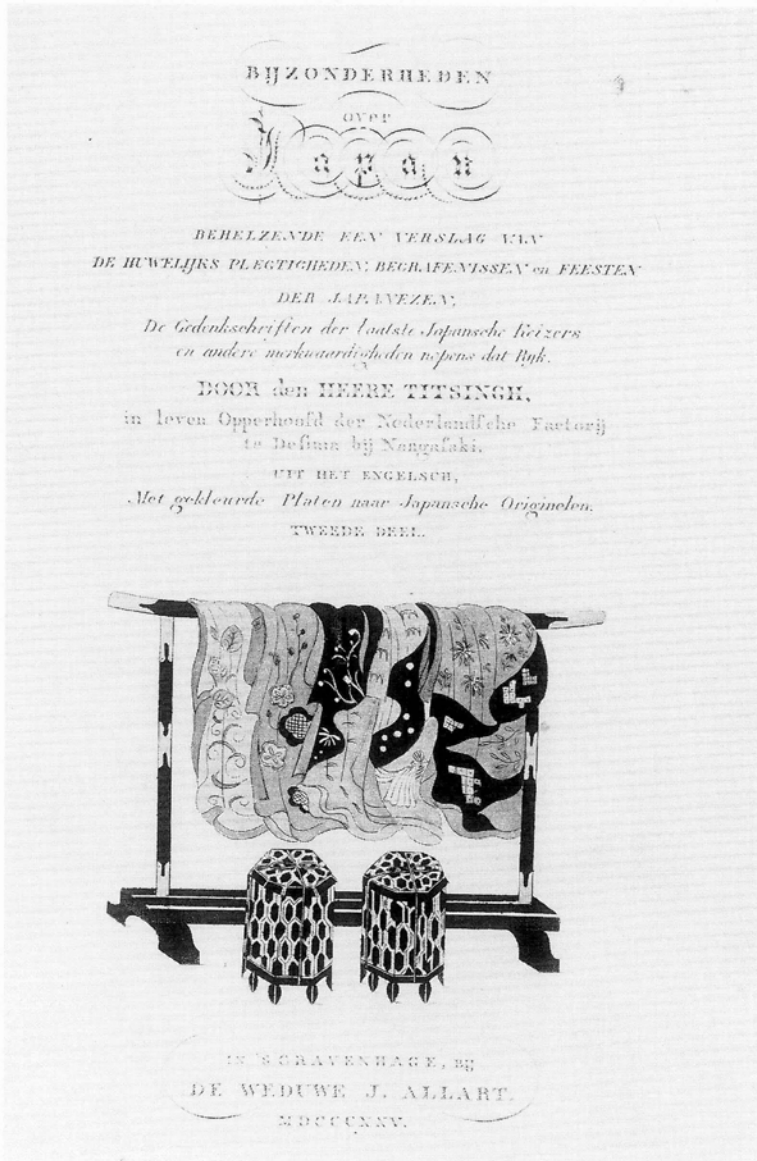 BIJZONDERHEDEN
over
Japan
BEHELZENDE EEN VERSLAG VAN
DE HUWELIJKS PLEGTIGHEDEN, BEGRAFENISSEN en FEESTEN
DER JAPANEZEN,
De Gedenkschriften der laatste Japansche Keizers
en andere merkwaardigheden nopens dat Ryk.
DOOR den HEERE TITSINGH,
in leven Opperhoofd der Nederlandſche Factorij
te Deſima bij Nangaſaki.
UIT HET ENGELSCH,
Met gekleurde Platen naar Japansche Originelen.
TWEEDE DEEL.
IN 'S GRAVENHAGE, Bij
DE WEDUWE J. ALLART.
MDCCCXXV.